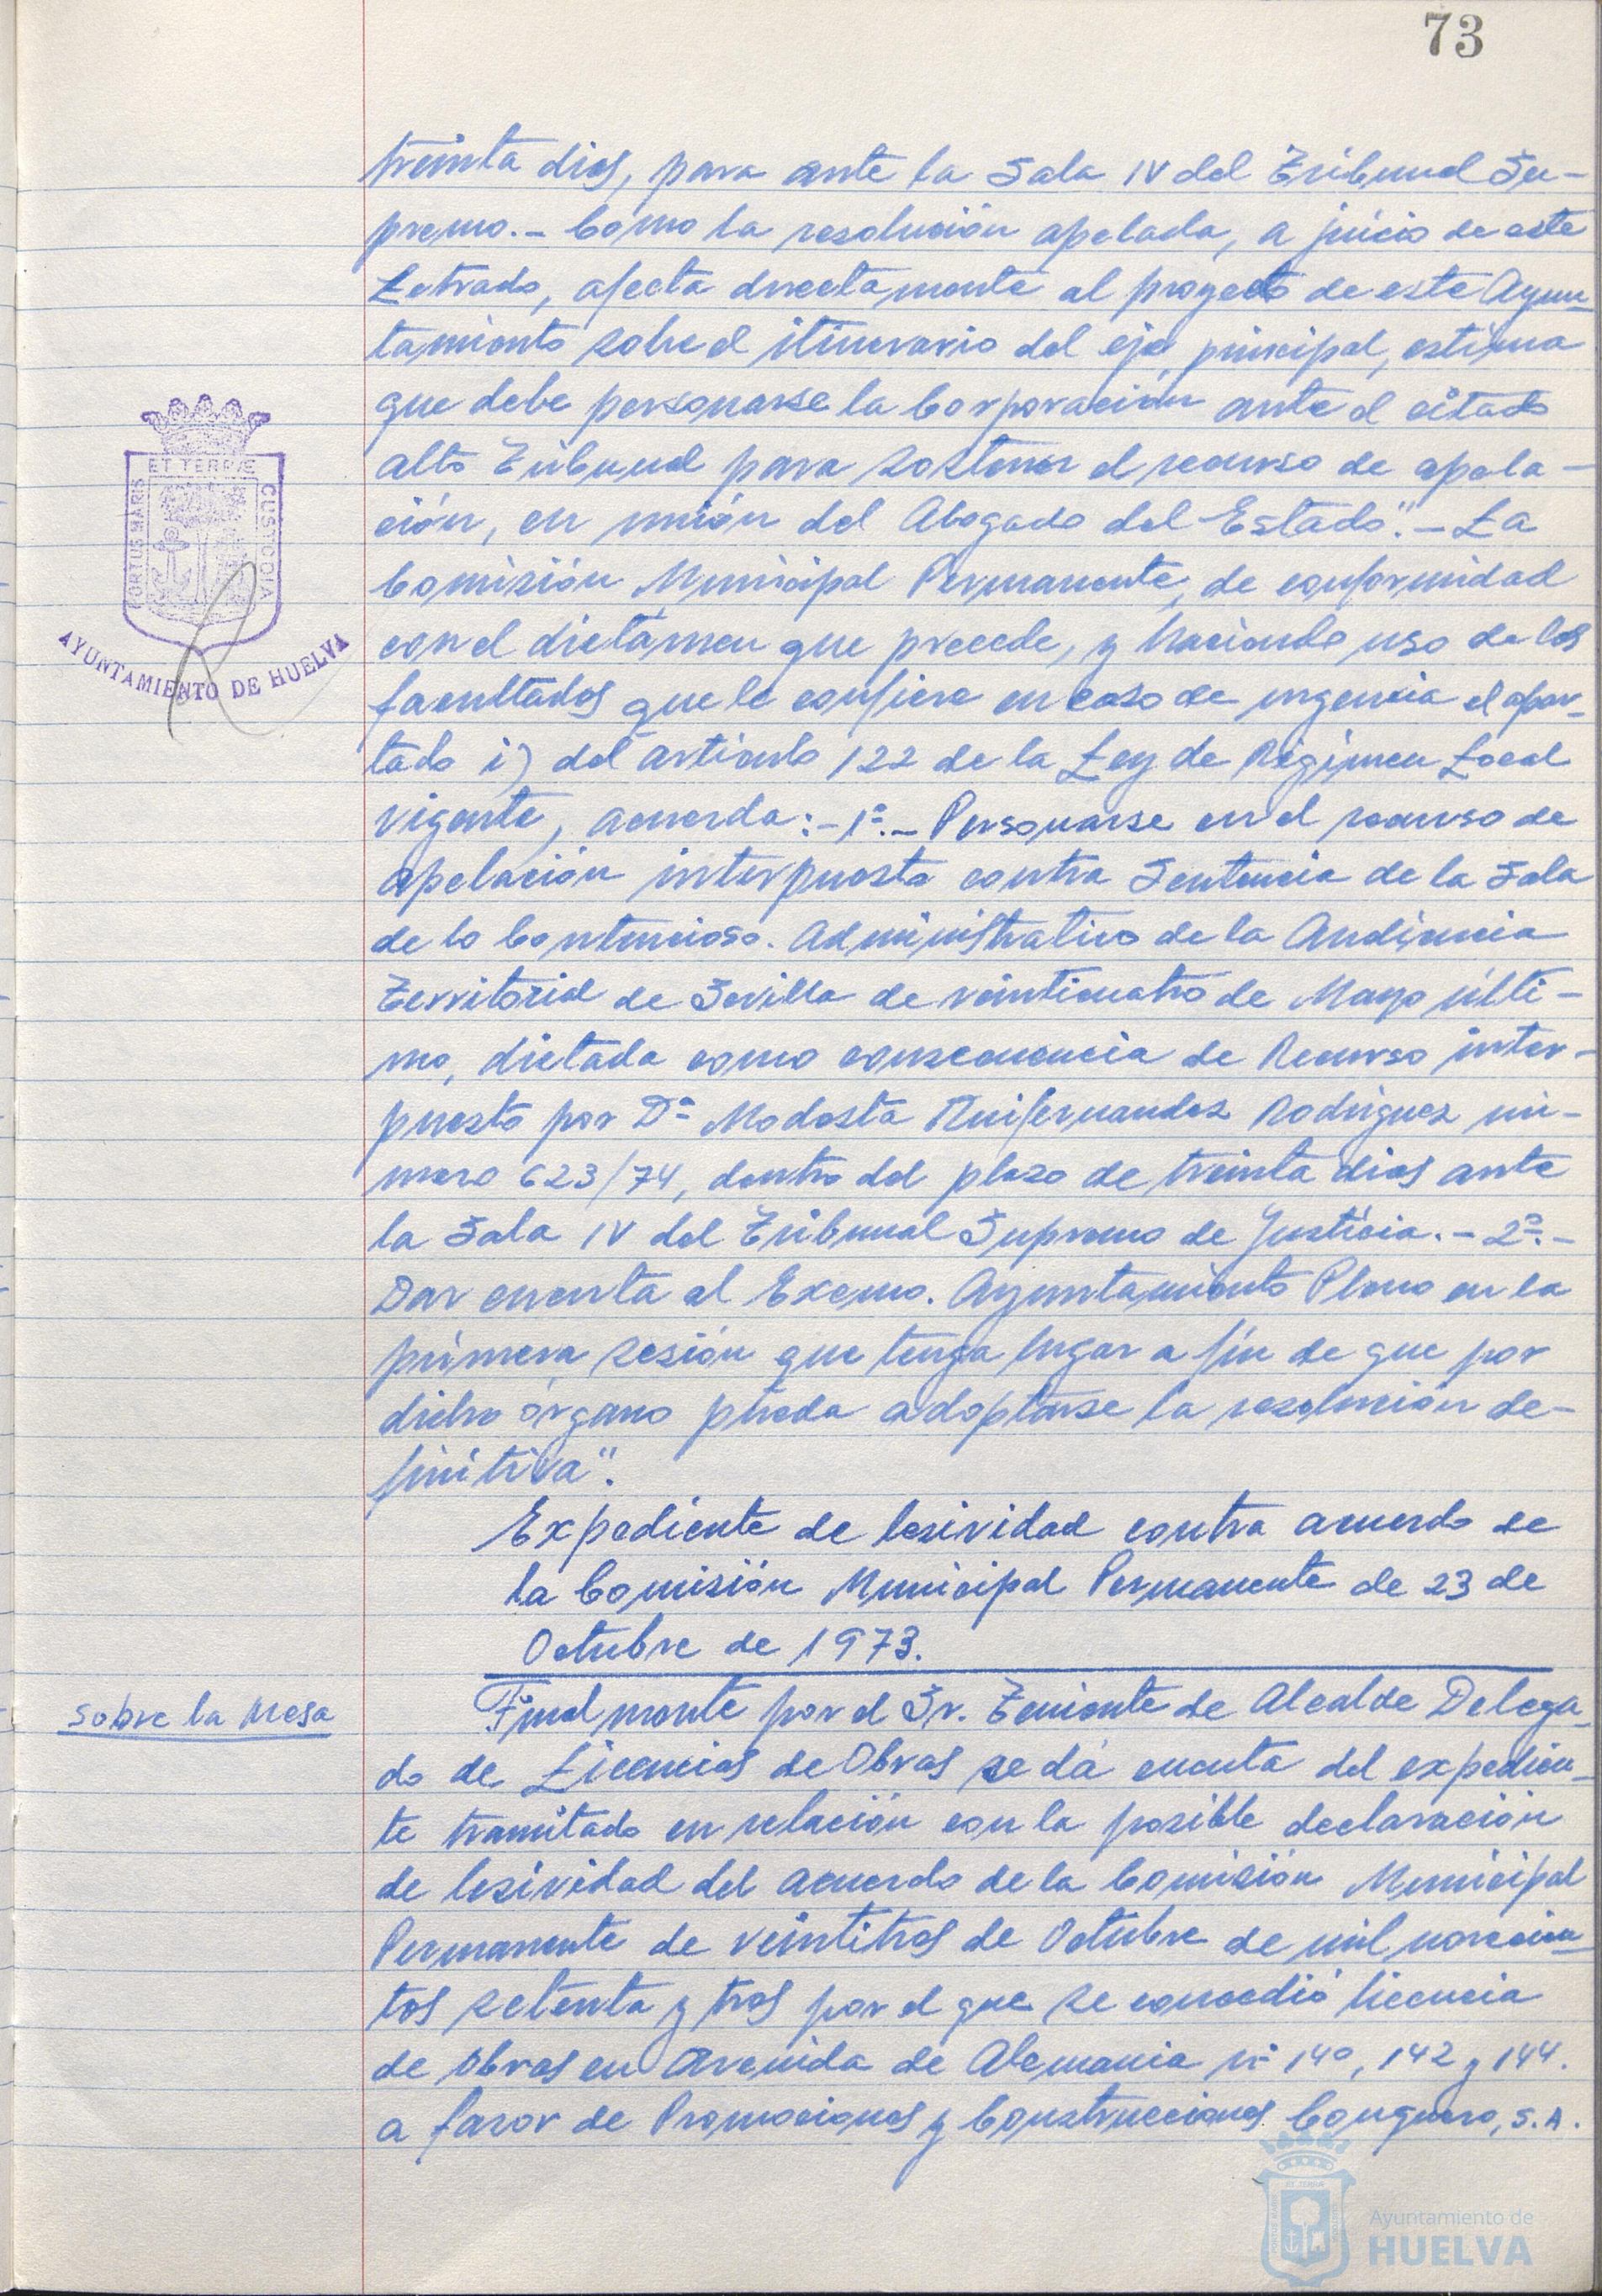 73
treinta dias, para ante la Sala IV del Tribunal Su-
premo.- Como la resolución apelada, a juicio de este
Letrado, afecta directamente al proyecto de este Ayun-
tamiento sobre el itinerario del eje principal, estima
que debe personarse la Corporación ante el citado
alto Tribunal para sostener el recurso de apela-
ción, en unión del Abogado del Estado".- La
Comisión Municipal Permanente, de conformidad
con el dictámen que precede, y haciendo uso de las
facultades que le confiere en caso de urgencia el apar-
tado i) del artículo 122 de la Ley de Régimen Local
vigente, acuerda:- 1º.- Personarse en el recurso de
apelación interpuesto contra Sentencia de la Sala
de lo Contencioso. Administrativo de la Audiencia
Territorial de Sevilla de veinticuatro de Mayo últi-
mo, dictada como consecuencia de Recurso inter-
puesto por Dª Modesta Ruifernandez Rodriguez nú-
mero 623/74, dentro del plazo de treinta dias ante
la Sala IV del Tribunal Supremo de Justicia.- 2º.-
Dar cuenta al Excmo. Ayuntamiento Pleno en la
primera sesión que tenga lugar a fin de que por
dicho órgano pueda adoptarse la resolución de-
finitiva".
Expediente de lesividad contra acuerdo de
la Comisión Municipal Permanente de 23 de
Octubre de 1973.
Sobre la Mesa
Finalmente por el Sr. Teniente de Alcalde Delega-
do de Licencias de Obras se dá cuenta del expedien-
te tramitado en relación con la posible declaración
de lesividad del acuerdo de la Comisión Municipal
Permanente de veintitres de Octubre de mil novecien-
tos setenta y tres por el que se concedió licencia
de obras en Avenida de Alemania nº 140, 142 y 144.
a favor de Promociones y Construcciones Conguero, S.A.
PORTUS MARIS
ET TERRÆ
CUSTODIA
AYUNTAMIENTO DE HUELVA
Ayuntamiento de
HUELVA